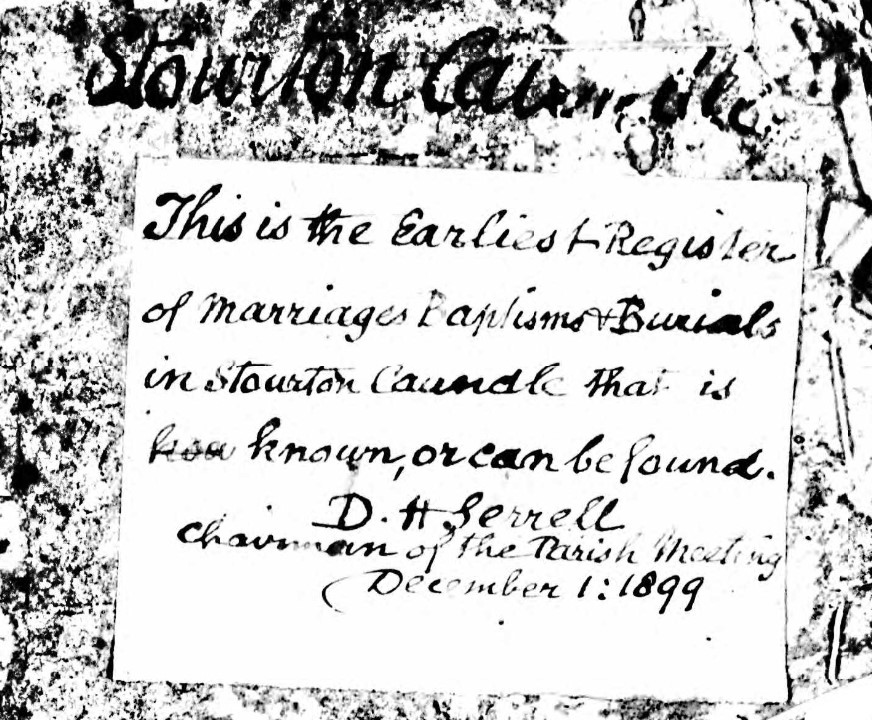 Stourton Caundle
This is the Earliest Register
of Marriages Baptisms & Burials
in Stourton Caundle that is
known, or can be found.
D. H Serrell
Chairman of the Parish Meeting
December 1: 1899